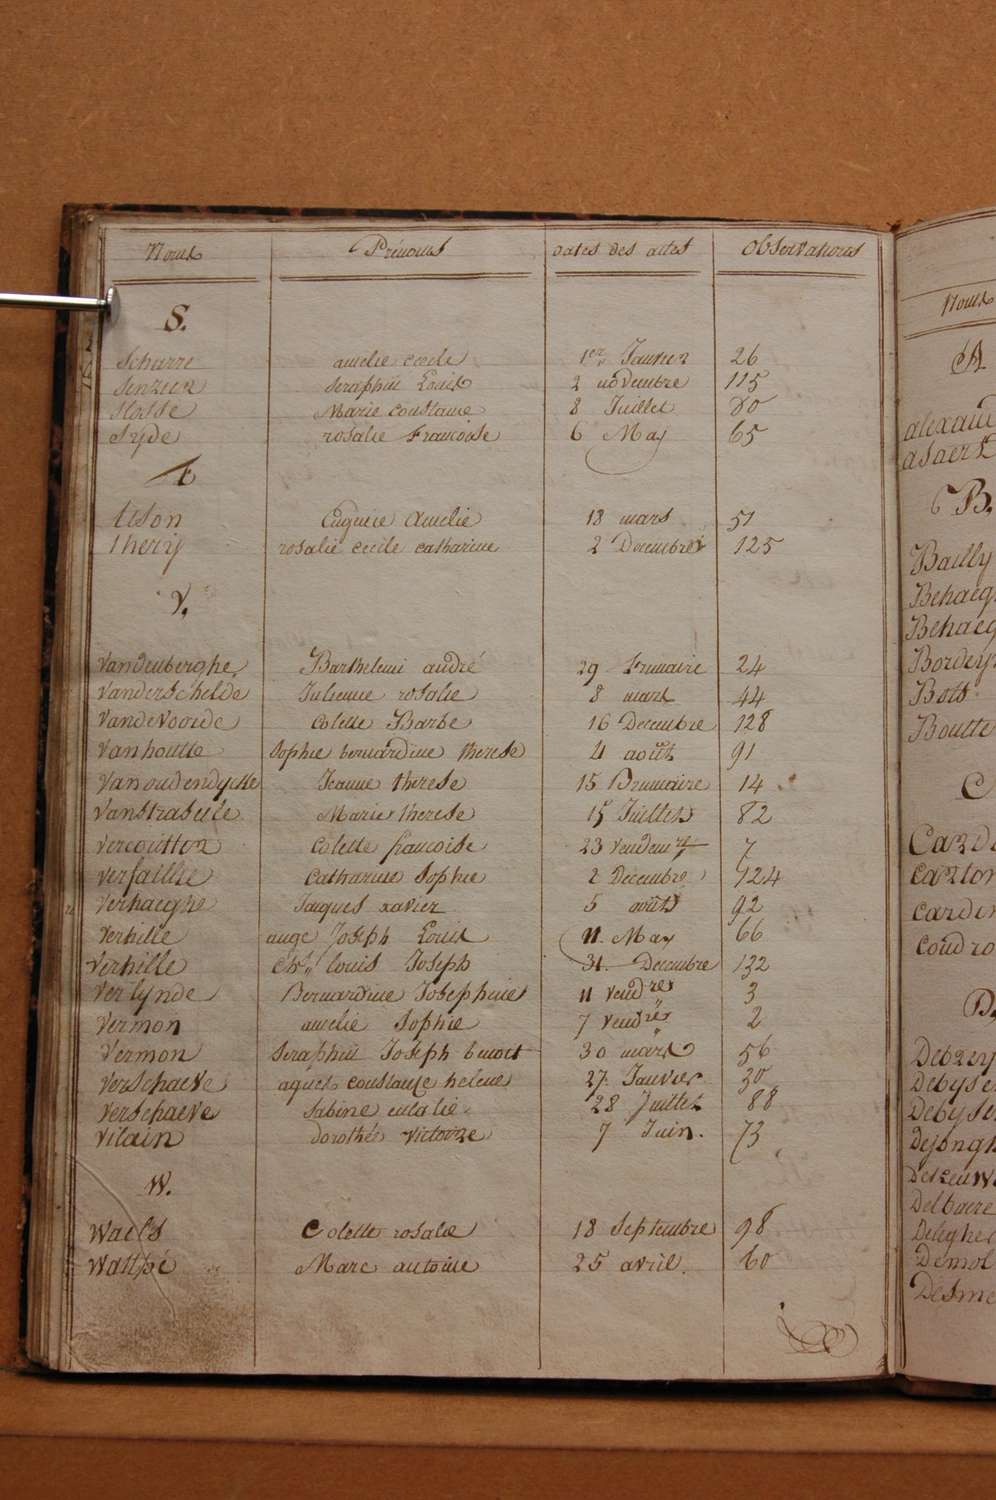 Noms Prénoms Dates des actes Observations
S.
Schurre amelie cecile 1er Janvier 26
Senzien Seraphin Louis 2 novembre 115
Slosse Marie constance 8 Juillet 80
Syde rosalie Francoise 6 May 65
T
tison Eugenie Amelie 18 mars 51
thery rosalie cecile catharine 2 Decembre 125
V.
Vandenberghe Barthelemi andré 29 frimaire 24
Vanderschelde Julienne rosalie 8 mars 44
Vandevoorde Colette Barbe 16 Decembre 128
Vanhoutte Sophie bernardine therese 4 août 91
Vanoudendycke Jeanne therese 15 Brumaire 14
Vanstrabeele Marie therese 15 Juillet 82
Vercoutter Colette francoise 23 vendem 7
Verfaillie Catharine Sophie 2 Decembre 124
Verhaeghe Jacques xavier 5 août 92
Verhille auge Joseph Louis 11. May 66
Verhille Ch. louis Joseph 31. Decembre 132
Verlynde Bernardine Josephine 11 vendre 3
Vermon amelie Sophie 7 vendre 2
Vermon Seraphin Joseph benoit 30 mars 56
Verschaeve agnes constance helene 27. Janvier 30
Verschaeve Sabine eulalie 28 Juillet 88
Vilain dorothé victoire 7 Juin. 73
W.
Waels Colette rosalie 18 Septembre 98
Watthé Marc antoine 25 avril. 60
Noms
A
B.
Bailly
C